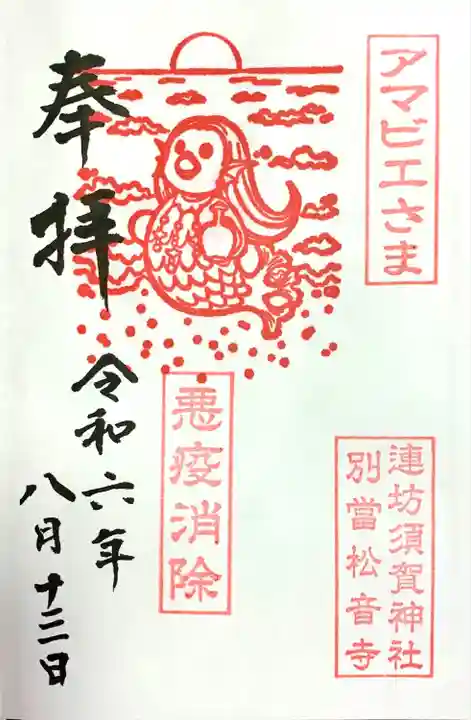 アマビエさま
連坊須賀神社
別當松音寺
悪疫消除
奉拝
令和六年
八月十三日